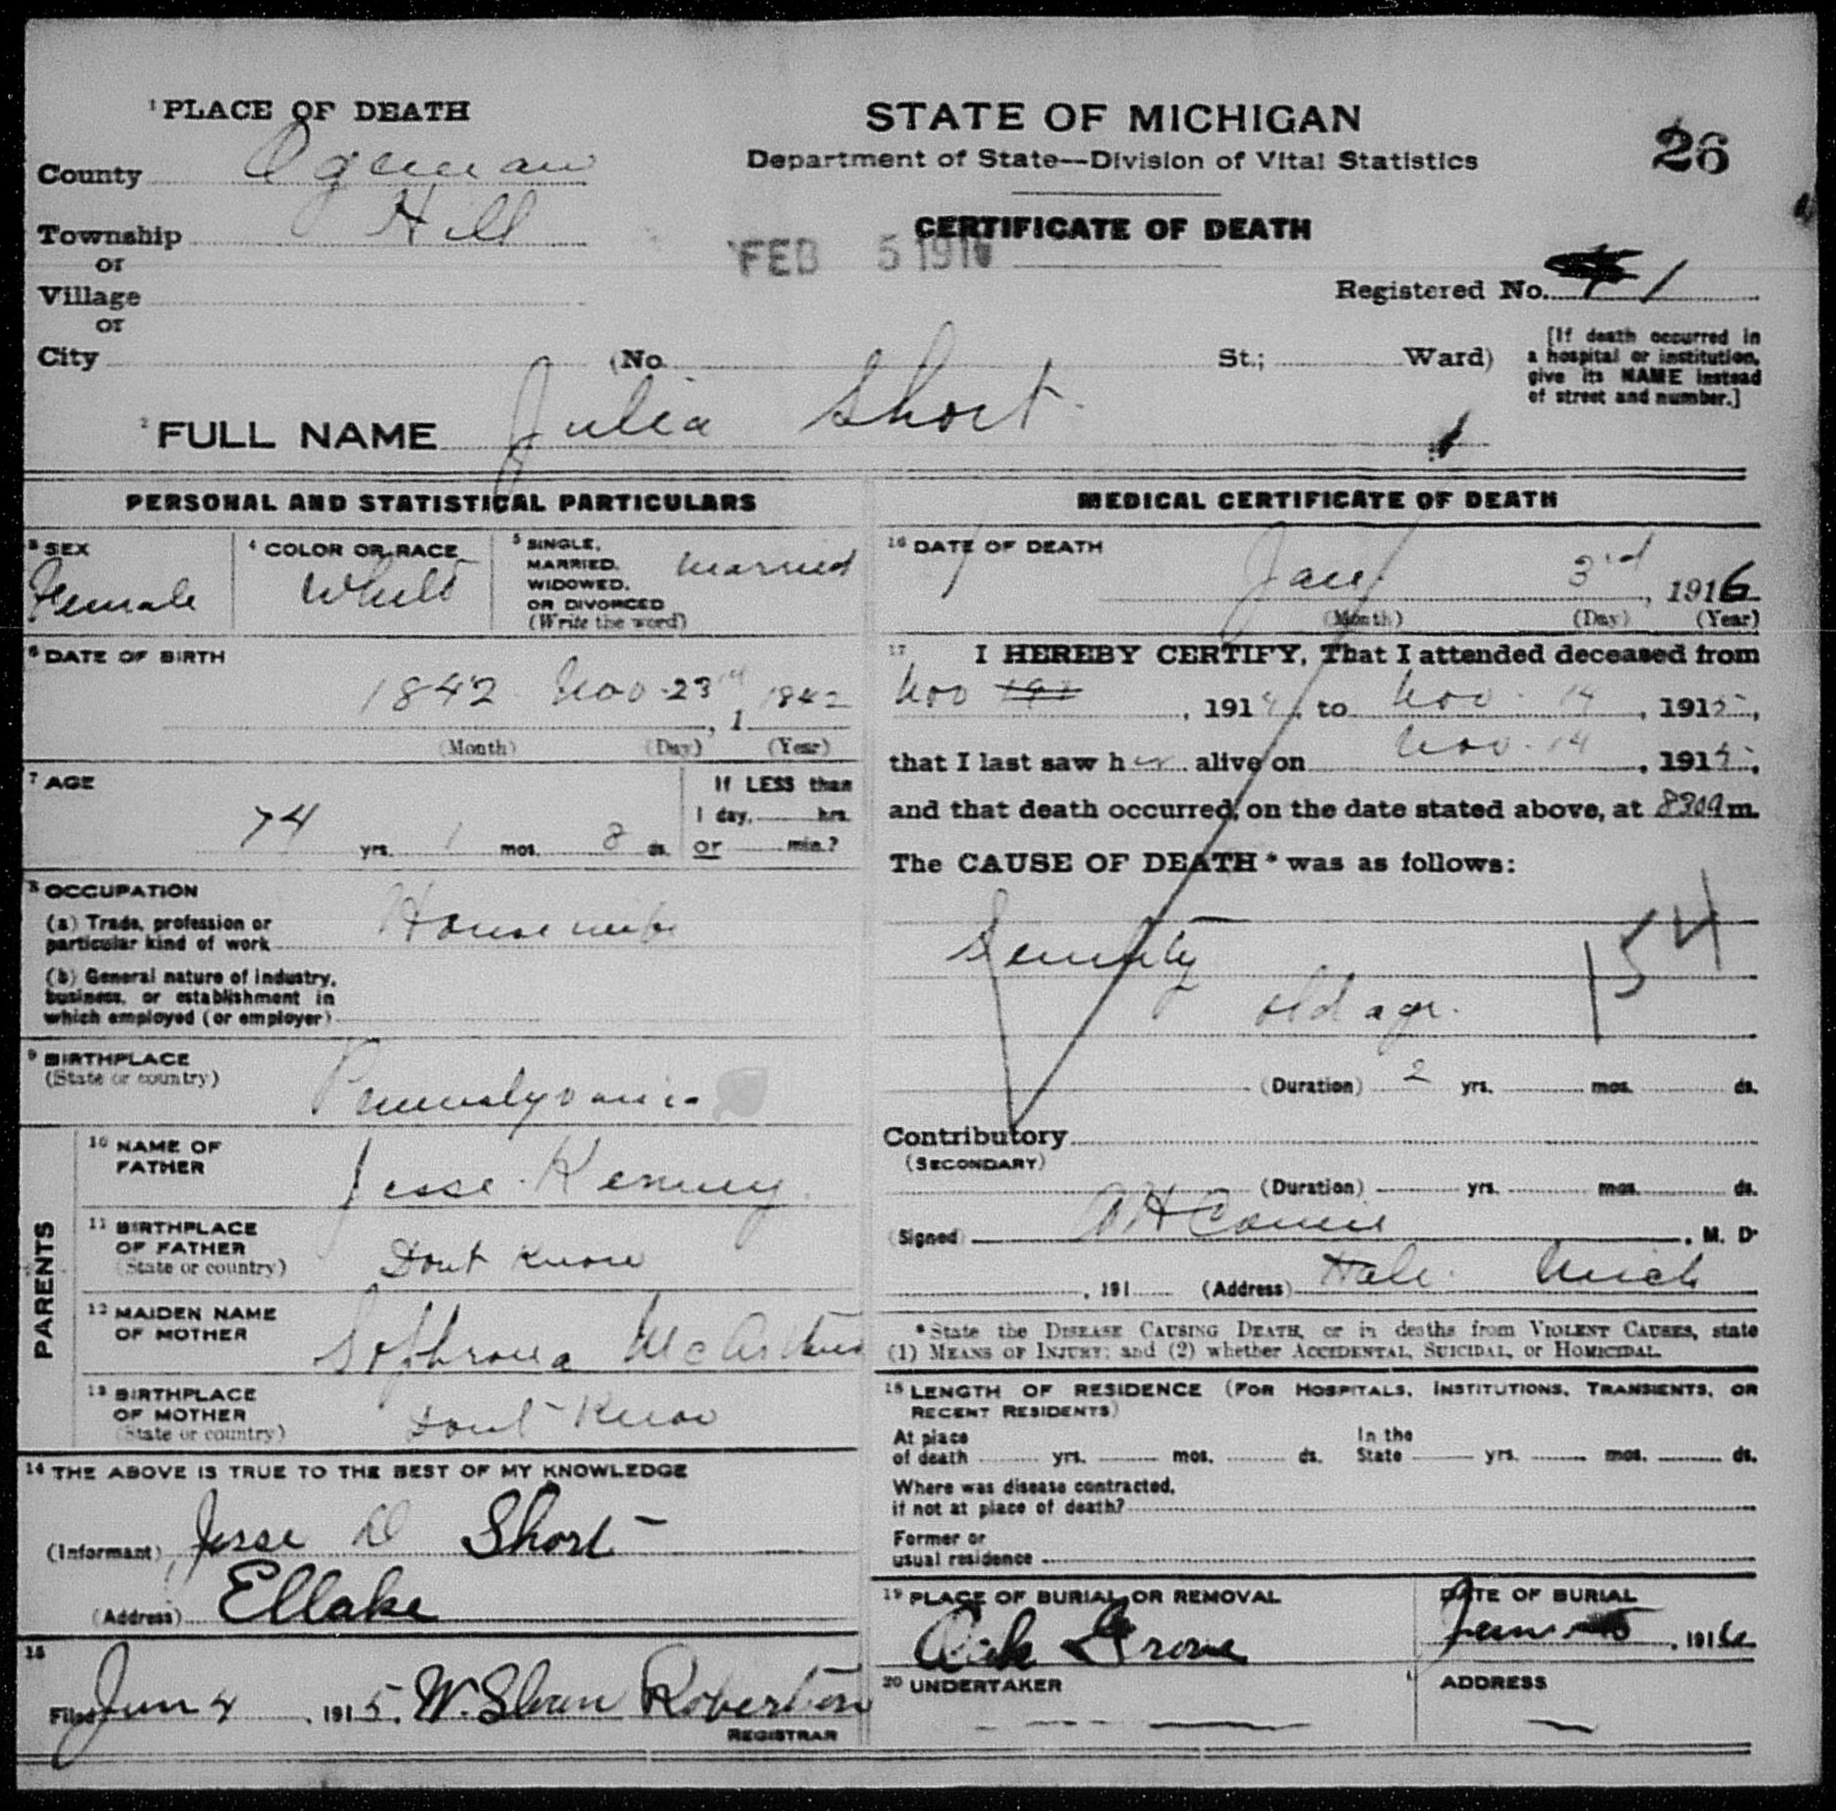 1 PLACE OF DEATH
County Ogemaw
Township Hill
or
Village
or
City (No. St.; Ward)
STATE OF MICHIGAN
Department of State—Division of Vital Statistics
CERTIFICATE OF DEATH
FEB 5 1916
26
Registered No. 1
[If death occurred in
a hospital or institution,
give its NAME instead
of street and number.]
2 FULL NAME Julia Short
PERSONAL AND STATISTICAL PARTICULARS
3 SEX
Female
4 COLOR OR RACE
White
5 SINGLE,
MARRIED,
WIDOWED,
OR DIVORCED
(Write the word)
Married
6 DATE OF BIRTH
1842 Nov 23rd, 1 1842
(Month) (Day) (Year)
7 AGE
74 yrs. 1 mos. 8 ds.
If LESS than
1 day, hrs.
or min.?
8 OCCUPATION
(a) Trade, profession or
particular kind of work Housewife
(b) General nature of industry,
business, or establishment in
which employed (or employer)
9 BIRTHPLACE
(State or country)
Pennsylvania
PARENTS
10 NAME OF
FATHER
Jesse Kenney
11 BIRTHPLACE
OF FATHER
(State or country)
Dont Know
12 MAIDEN NAME
OF MOTHER
Soffrona McArthur
13 BIRTHPLACE
OF MOTHER
(State or country)
Dont Know
14 THE ABOVE IS TRUE TO THE BEST OF MY KNOWLEDGE
(Informant) Jesse D Short
(Address) Ellake
15
Filed Jun 4, 1915. W. Sloan Robertson
REGISTRAR
MEDICAL CERTIFICATE OF DEATH
16 DATE OF DEATH
Jany 3rd, 1916
(Month) (Day) (Year)
17 I HEREBY CERTIFY, That I attended deceased from
Nov, 1914, to Nov. 14, 1915,
that I last saw her alive on Nov. 14, 1915,
and that death occurred, on the date stated above, at 830a m.
The CAUSE OF DEATH* was as follows:
Senility
old age.
154
(Duration) 2 yrs. mos. ds.
Contributory
(SECONDARY)
(Duration) yrs. mos. ds.
(Signed) , M. D.
, 191 (Address) Hale. Mich
*State the DISEASE CAUSING DEATH, or in deaths from VIOLENT CAUSES, state
(1) MEANS OF INJURY; and (2) whether ACCIDENTAL, SUICIDAL, or HOMICIDAL.
18 LENGTH OF RESIDENCE (FOR HOSPITALS, INSTITUTIONS, TRANSIENTS, OR
RECENT RESIDENTS)
At place
of death yrs. mos. ds.
In the
State yrs. mos. ds.
Where was disease contracted,
if not at place of death?
Former or
usual residence
19 PLACE OF BURIAL OR REMOVAL
Oak Grove
DATE OF BURIAL
Jan 5, 1916
20 UNDERTAKER
ADDRESS